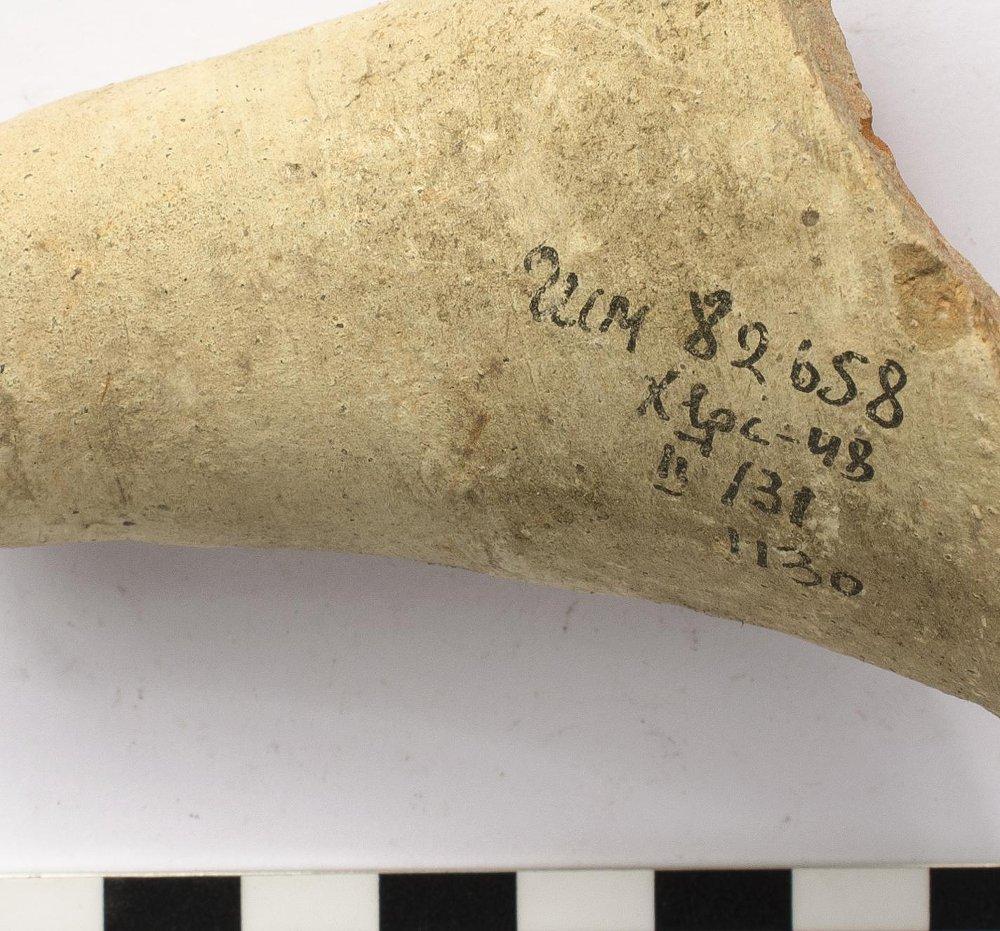 ГИМ 82658
Херс-48
II /31
1130